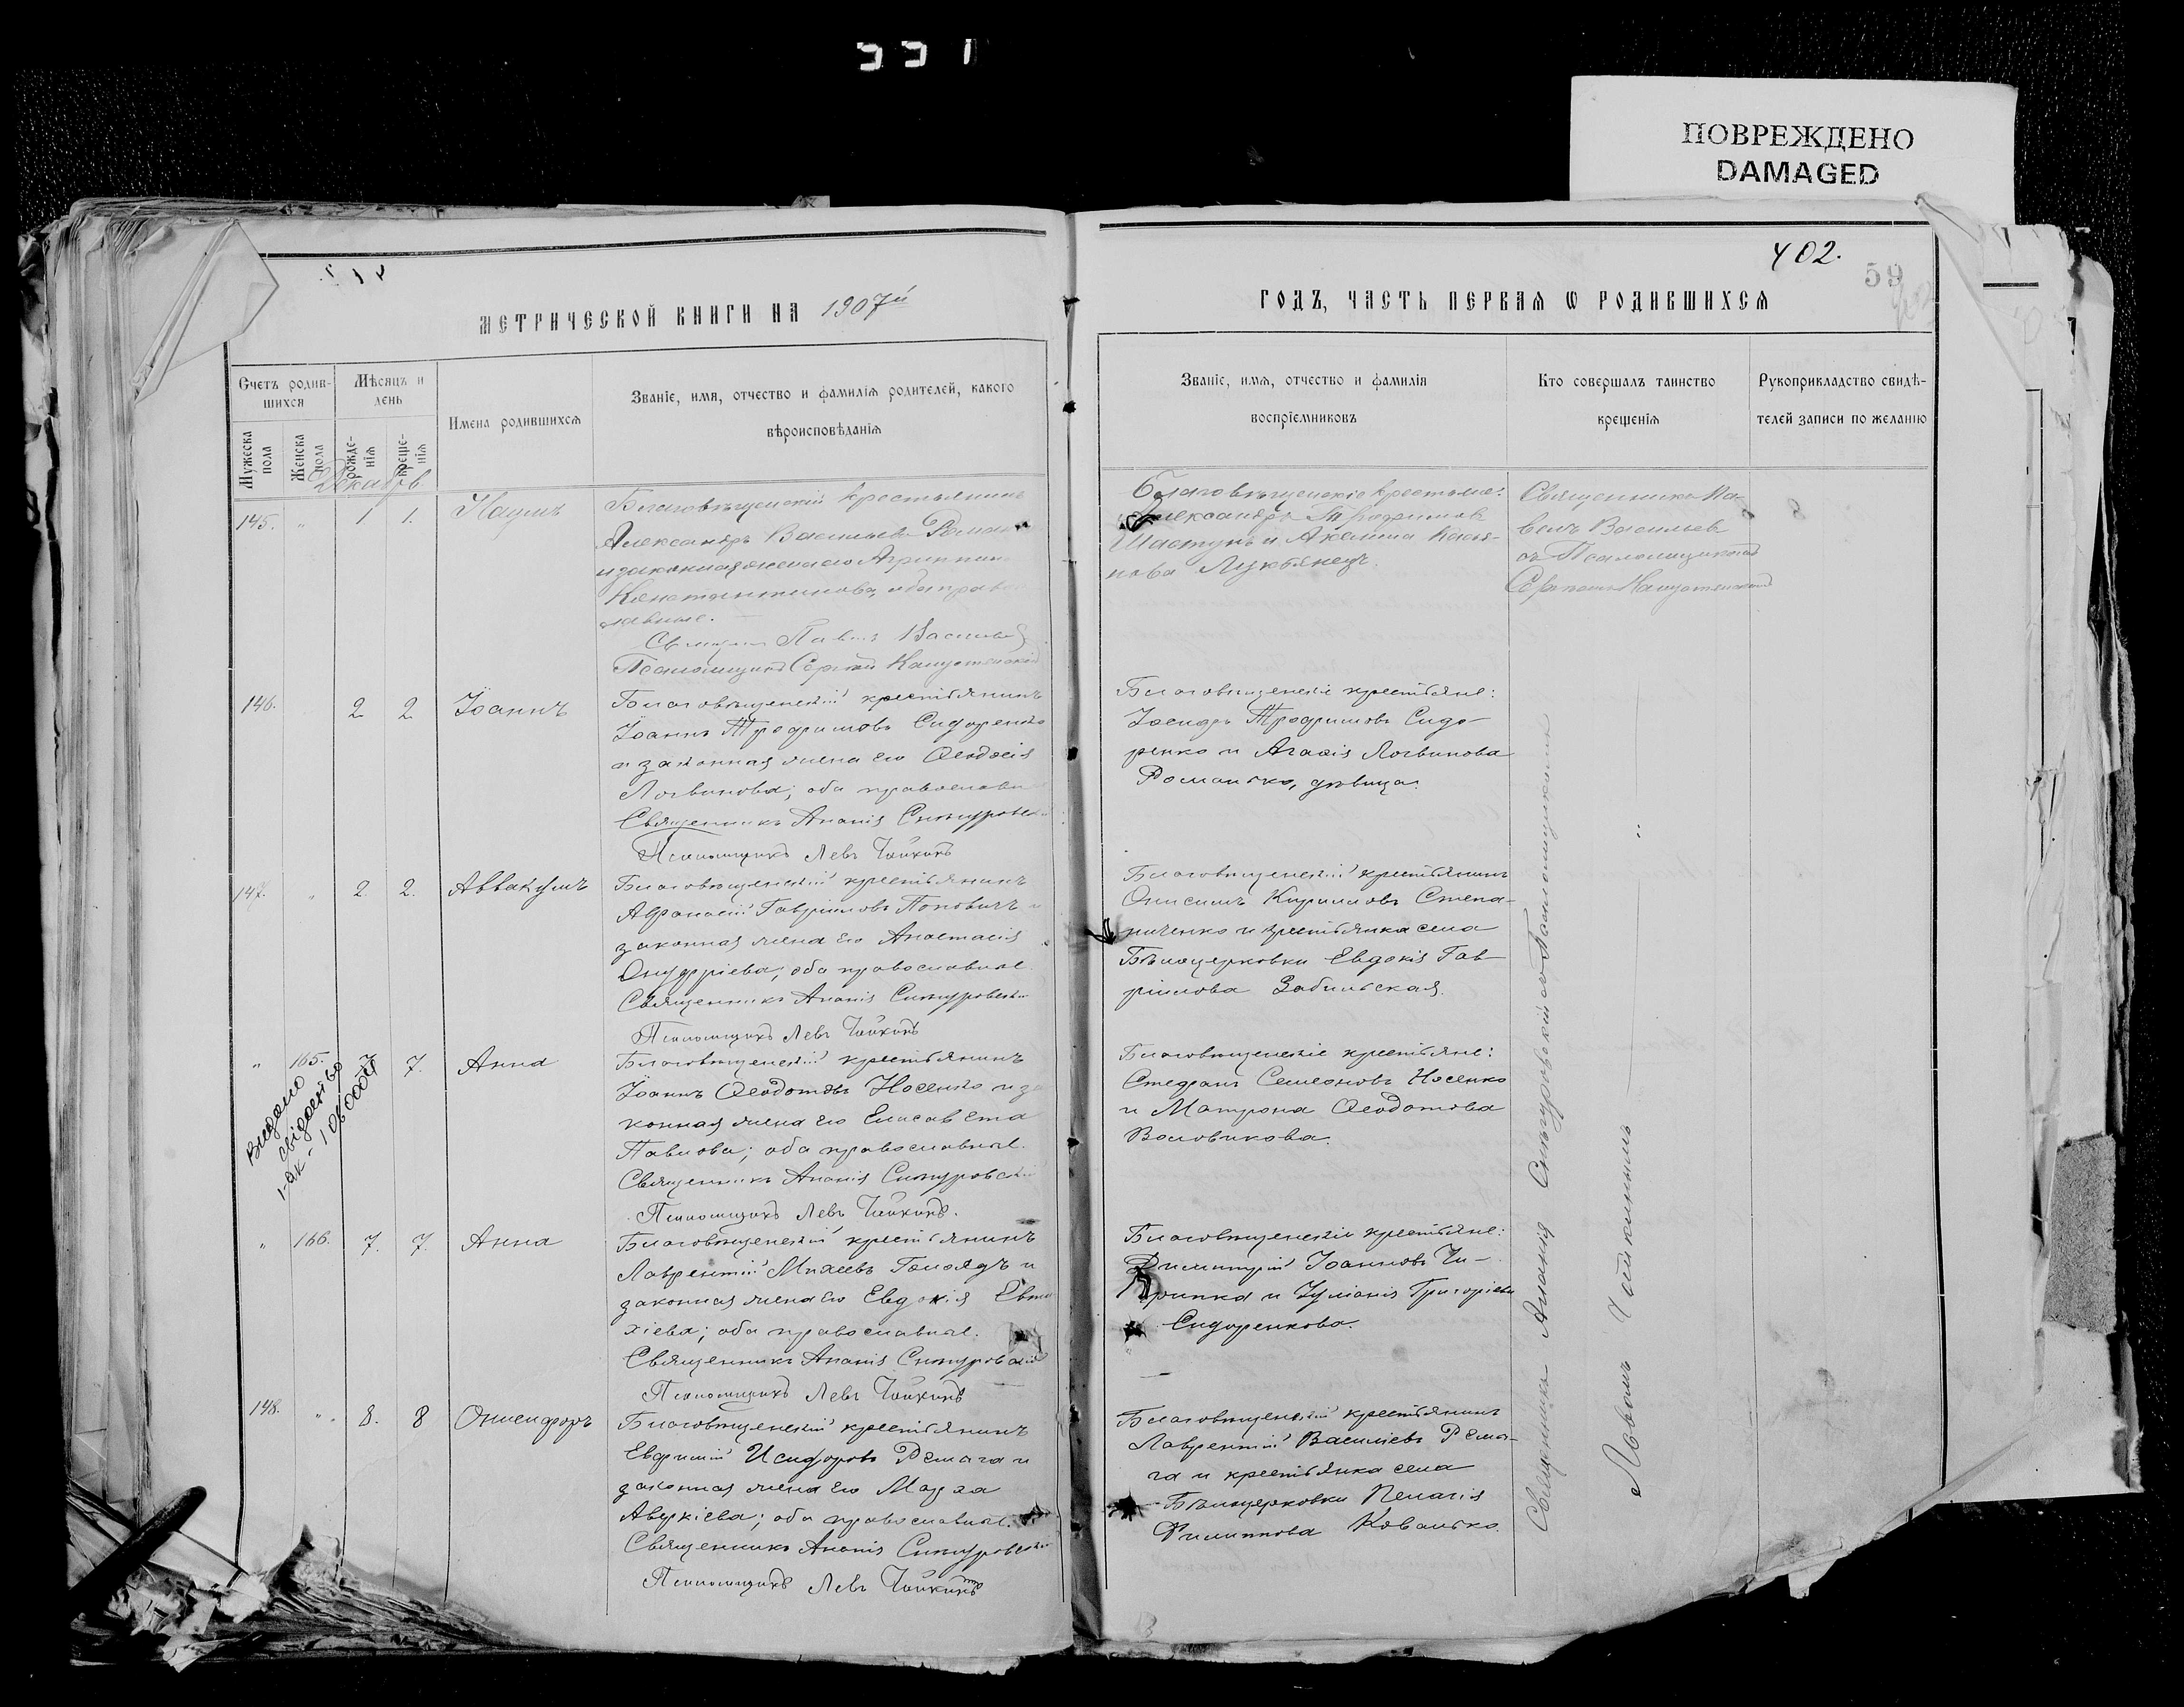 331
ПОВРЕЖДЕНО
DAMAGED
МЕТРИЧЕСКОЙ КНИГИ НА 1907й
Счетъ родив-
шихся
Мѣсяцъ и
день
Мужеска
пола
Женска
пола
рожде-
нія
креще-
нія
Имена родившихся
Званіе, имя, отчество и фамилія родителей, какого
вѣроисповѣданія
402.
59
ГОДЪ, ЧАСТЬ ПЕРВАЯ Ѡ РОДИВШИХСЯ
Званіе, имя, отчество и фамилія
воспріемниковъ
Кто совершалъ таинство
крещенія
Рукоприкладство свидѣ-
телей записи по желанію
Декабрь
145. " 1 1. Наумъ
Благовѣщенскій крестьянинъ
Александръ Васильевъ
и законная жена его Агриппина
Константинова, оба право
славные.
Священ Павелъ Васильев
Псаломщикъ Сергѣй
Благовѣщенскіе крестьяне:
Александръ Трофимовъ
Шастунъ и Акилина Касья-
нова Лукьянецъ.
Священникъ Па-
велъ Васильев
съ Псаломщикомъ
146. 2 2 Іоаннъ
Благовѣщенскій крестьянинъ
Іоаннъ Трофимовъ Сидоренко
и законная жена его Ѳеодосія
Логвинова; оба православн
Священникъ Ананія Снѣгуровск
Псаломщикъ Левъ Чайкинъ
Благовѣщенскіе крестьяне:
Исидоръ Трофимовъ Сидо-
ренко и Агаѳія Логвинова
Романько, дѣвица.
147. " 2 2. Аввакумъ
Благовѣщенскій крестьянинъ
Аѳанасій Гавріиловъ Поповичъ и
законная жена его Анастасія
Онуфріева; оба православные.
Священникъ Ананія Снѣгуровскій
Псаломщикъ Левъ Чайкинъ
Благовѣщенскій крестьянинъ
Онисимъ Кирилловъ Степа-
ниченко и крестьянка села
Бѣлоцерковки Евдокія Гав-
ріилова Забильская.
" 165. 7 7. Анна
Видано
свідоцтво
Благовѣщенскій крестьянинъ
Іоаннъ Ѳеодотовъ Носенко и за
конная жена его Елисавета
Павлова; оба православные.
Священникъ Ананія Снѣгуровскій
Псаломщикъ Левъ Чайкинъ.
Благовѣщенскіе крестьяне:
Стефанъ Семеоновъ Носенко
и Матрона Ѳеодотова
Воловикова.
" 166. 7. 7. Анна
Благовѣщенскій крестьянинъ
Лаврентій Михеевъ и
законная жена его Евдокія Евти
хіева; оба православные.
Священникъ Ананія Снѣгуровскій
Псаломщикъ Левъ Чайкинъ
Благовѣщенскіе крестьяне:
Димитрій Іоанновъ Чи-
рипка и Іуліанія Григоріева
Сидоренкова.
148. " 8. 8 Онисифоръ
Благовѣщенскій крестьянинъ
Евфимій Исидоровъ Ремага и
законная жена его Марѳа
Аверкіева; оба православные.
Священникъ Ананія Снѣгуровскій
Псаломщикъ Левъ Чайкинъ
Благовѣщенскій крестьянинъ
Лаврентій Василіевъ Рема-
га и крестьянка села
Бѣлоцерковки Пелагія
Филиппова Ковалько.
Священникъ Ананія Снѣгуровскій съ Псаломщикомъ
Львомъ Чайкинымъ